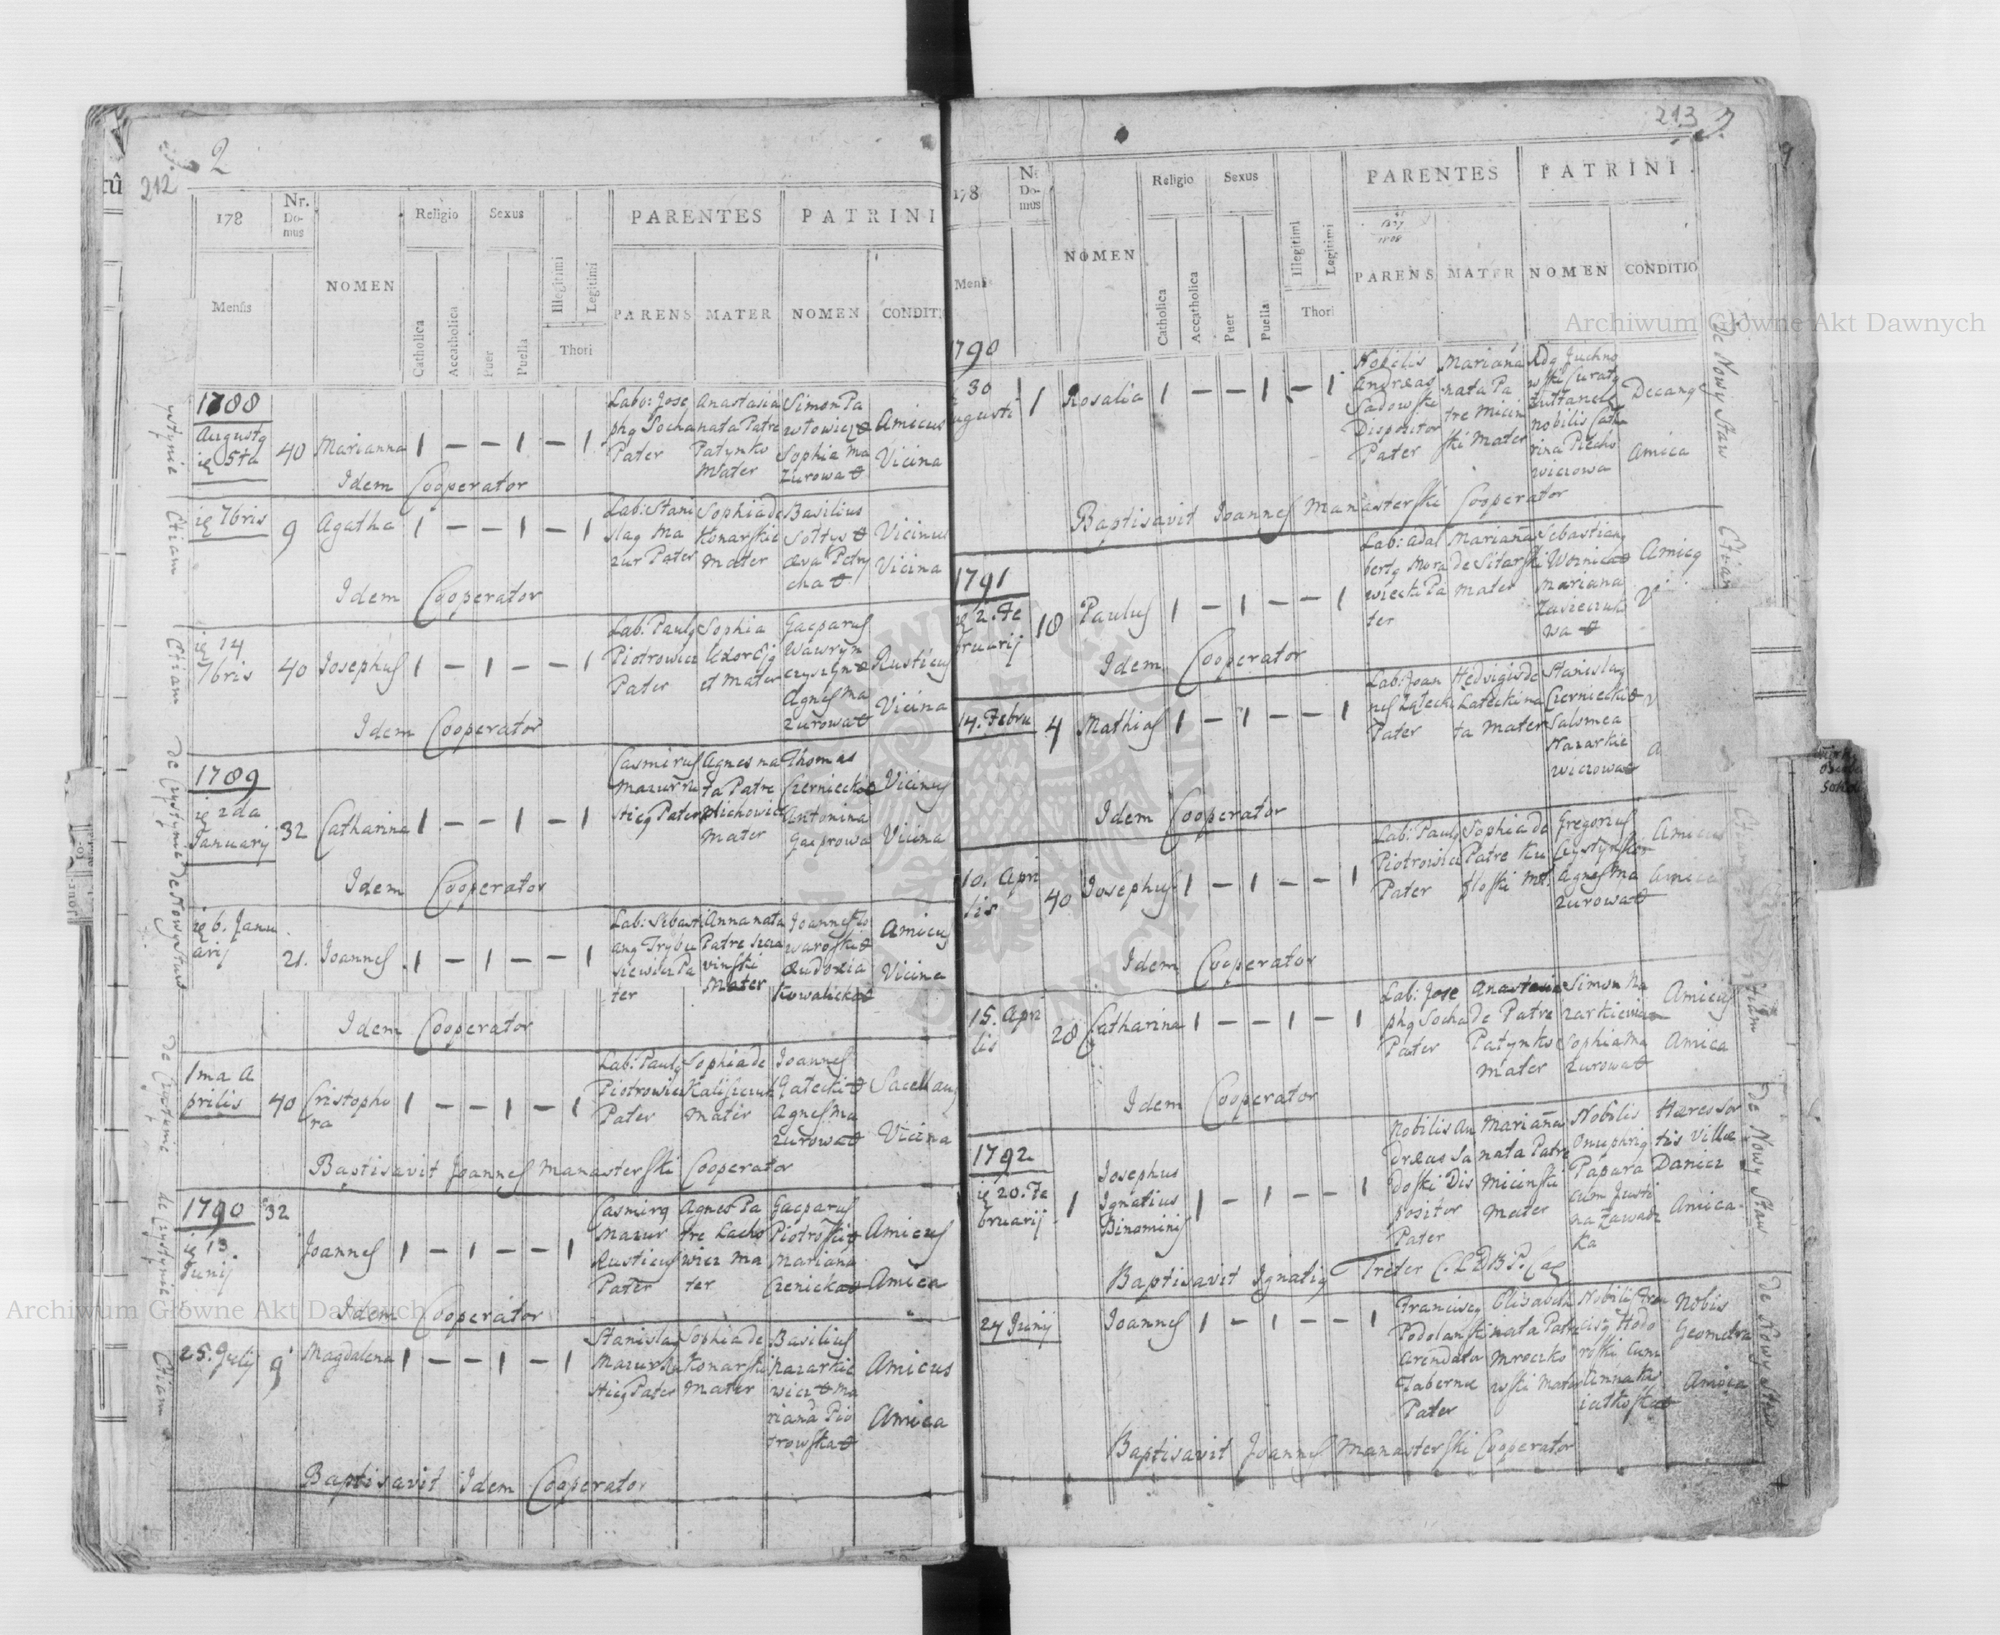 212
2
178
Nr. Domus
NOMEN
Religio
Sexus
Illegitimi
Legitimi
PARENTES
PATRINI
Mensis
Catholica
Accatholica
Puer
Puella
Thori
PARENS
MATER
NOMEN
CONDITI
1788
Augusty
5ta
40
Marianna
1 — — 1 — 1
Labo: Jose
phq Socha
Pater
Anastasia
nata Patre
Patynko
Mater
Simon Pa
wtowicz &
Sophia Ma
zurowa &
Amicus
Vicina
Idem Cooperator
7bris
9
Agatha
1 — — 1 — 1
Lab: Stani
slaq Ma
zur Pater
Sophia de
Konarskie
Mater
Basilius
Sołtys &
Æva Petry
cha &
Vicinus
Vicina
Idem Cooperator
14
7bris
40
Josephus
1 — 1 — — 1
Lab: Paulq
Piotrowicz
Pater
Sophia
Uxor Ejq
et Mater
Gasparus
Wawryn
czyszyn &
Agnes Ma
zurowa &
Rusticus
Vicina
Idem Cooperator
1789
2da
January
32
Catharina
1 — — 1 — 1
Casmirus
Mazur ru
sticq Pater
Agnes na
ta Patre
Michowicz
Mater
Thomas
Czerniecki &
Antonina
Gasprowa
Vicinus
Vicina
Idem Cooperator
6. Janu
arij
21.
Joannes
1 — 1 — — 1
Lab: Sebasti
anq Trybu
siewicz Pa
ter
Anna nata
Patre
Mater
Joannes
Eudoxia
Kowalicka &
Amicus
Vicina
Idem Cooperator
1ma A
prilis
40
Cristopho
ra
1 — — 1 — 1
Lab: Paulq
Piotrowicz
Pater
Sophia de
Kaliszczuk
Mater
Joannes
Gatecki &
Agnes Ma
zurowa &
Sacellanq
Vicina
Baptisavit Joannes Manasterski Cooperator
1790
32
13.
Junij
Joannes
1 — 1 — — 1
Casmirq
Mazur
Rusticus
Pater
Agnes Pa
tre Lacho
wicz Ma
ter
Gasparus
Piotroski &
Mariana
Czenicka &
Amicus
Amica
Idem Cooperator
25. Julij
9
Magdalena
1 — — 1 — 1
Stanislaq
Mazur Ru
sticq Pater
Sophia de
Konarski
Mater
Basilius
Nazarkie
wicz & Ma
riana Pio
trowska &
Amicus
Amica
Baptisavit Idem Cooperator
213
178
Nr. Domus
NOMEN
Religio
Sexus
Illegitimi
Legitimi
PARENTES
PATRINI
Mensis
Catholica
Accatholica
Puer
Puella
Thori
PARENS
MATER
NOMEN
CONDITIO
1790
30
Augusti
1
Rosalia
1 — — 1 — 1
Nobilis
Andreas
Sadowski
Dispositor
Pater
Mariana
nata Pa
tre Micin
ski Mater
Rdq Juchno
wski Curatq
nobilis Catha
rina Piecho
wiczowa
Amica
Baptisavit Joannes Manasterski Cooperator
1791
2. Fe
bruarij
18
Paulus
1 — 1 — — 1
Lab: Adal
bertq Mora
wiecki Pa
ter
Mariana
de Sitarski
Mater
Sebastianq
Woznica &
Mariana
wa &
Amicq
Idem Cooperator
14. Febru
4
Mathias
1 — 1 — — 1
Lab: Joan
nes Łatecki
Pater
Hedvigis de
Lateckina
ta Mater
Stanislaq
Czerniecki &
Salomea
Nazarkie
wiczowa &
Idem Cooperator
10. Apri
lis
40
Josephus
1 — 1 — — 1
Lab: Paulq
Piotrowicz
Pater
Sophia de
Patre Ku
Gregorius
Agnes Ma
zurowa &
Amicus
Amica
Idem Cooperator
15. Apri
lis
28
Catharina
1 — — 1 — 1
Lab: Jose
phq Socha
Pater
Anastasia
de Patre
Patynko
Mater
Simon Na
zarkiewicz
Sophia Ma
zurowa &
Amicus
Amica
Idem Cooperator
1792
20. Fe
bruarij
1
Josephus
Ignatius
Binominis
1 — 1 — — 1
Nobilis An
dreas Sa
doski Dis
positor
Pater
Mariana
nata Patre
Micinski
Mater
Nobilis
Onuphriq
Papara
cum Justi
na Zawadz
ka
Hæres sor
tis Villæ
Danicz
Amica
Baptisavit Ignatiq Treter
24 Junij
Joannes
1 — 1 — — 1
Franciscq
Podolanski
Arendator
Tabernæ
Pater
Elisabeth
nata Patre
Mroczko
wski Mater
Nobilis Fran
ciscq Hodo
roski cum
Anna
Nobis
Geometra
Amica
Baptisavit Joannes Manasterski Cooperator
De Nowy Staw
De Nowy Staw
De Nowy Staw
Archiwum Główne Akt Dawnych
Archiwum Główne Akt Dawnych